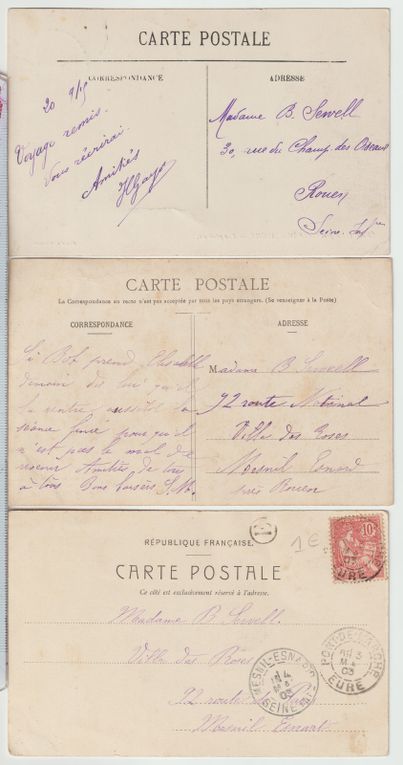 CARTE POSTALE
CORRESPONDANCE
ADRESSE
20 9/15
Voyage remis.
Vous récrirai.
Amitiés
Madame B. Sewell
30, rue du Champ des Oiseaux
Rouen
Seine Infre
CARTE POSTALE
La Correspondance au recto n'est pas acceptée par tous les pays étrangers. (Se renseigner à la Poste)
CORRESPONDANCE
ADRESSE
Si Bob prend
demain dis lui qu'il
la rentre aussitôt la
séance finie pour qu'il
n'est pas le mal de
Amitiés de tous
à tous Bons baisers S.M.
Madame B. Sewell
92 route National
Villa des Roses
Mesnil Esnard
près Rouen
RÉPUBLIQUE FRANÇAISE.
1€
10
03
EURE
CARTE POSTALE
Ce côté est exclusivement réservé à l'adresse.
Madame B. Sewell.
Villa des Roses
92 route
Mesnil Esnard
MESNIL-ESNARD
4
03
PONT-DE-L'ARCHE
3
03
EURE